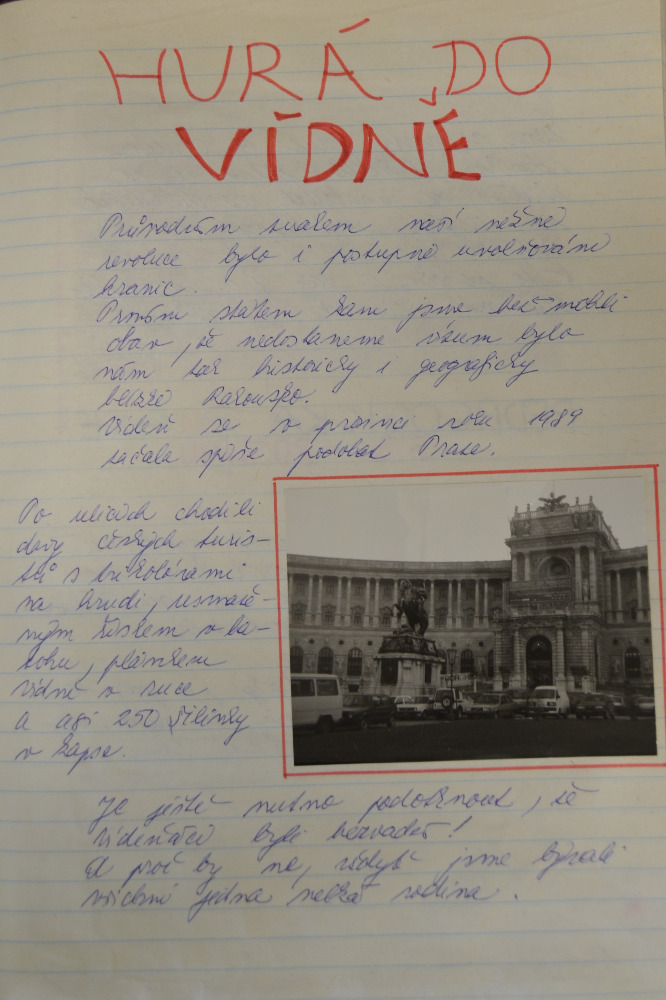 HURÁ DO
VÍDNĚ
Průvodním znakem naší něžné
revoluce bylo i postupné uvolňování
hranic.
Prvním státem kam jsme bez
obav, že nedostaneme vízum bylo
nám tak historicky i geograficky
blízké Rakousko.
Vídeň se v prosinci roku 1989
začala spíše podobat Praze.
Po ulicích chodili
davy českých turis-
tů s trikolórami
na hrudi,
ným řízkem v ba-
tohu, plánkem
Vídně v ruce
a asi 250 šilinky
v kapse.
Je ještě nutno podotknout, že
Vídeňáci byli bezvadní!
A proč by ne, vždyť jsme bývali
všichni jedna velká rodina.